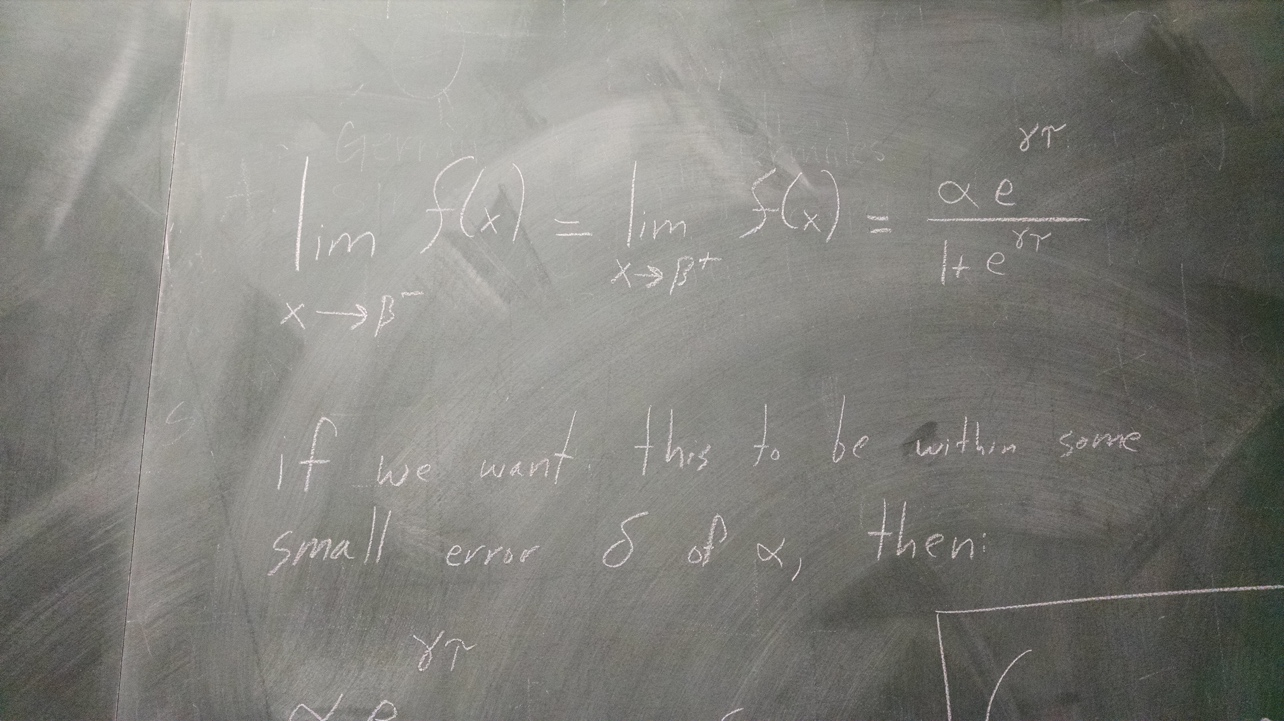 lim x→β⁻ f(x) = lim x→β⁺ f(x) = α e^γτ / 1+e^γτ
if we want this to be within some
small error δ of α, then:
α e^γτ